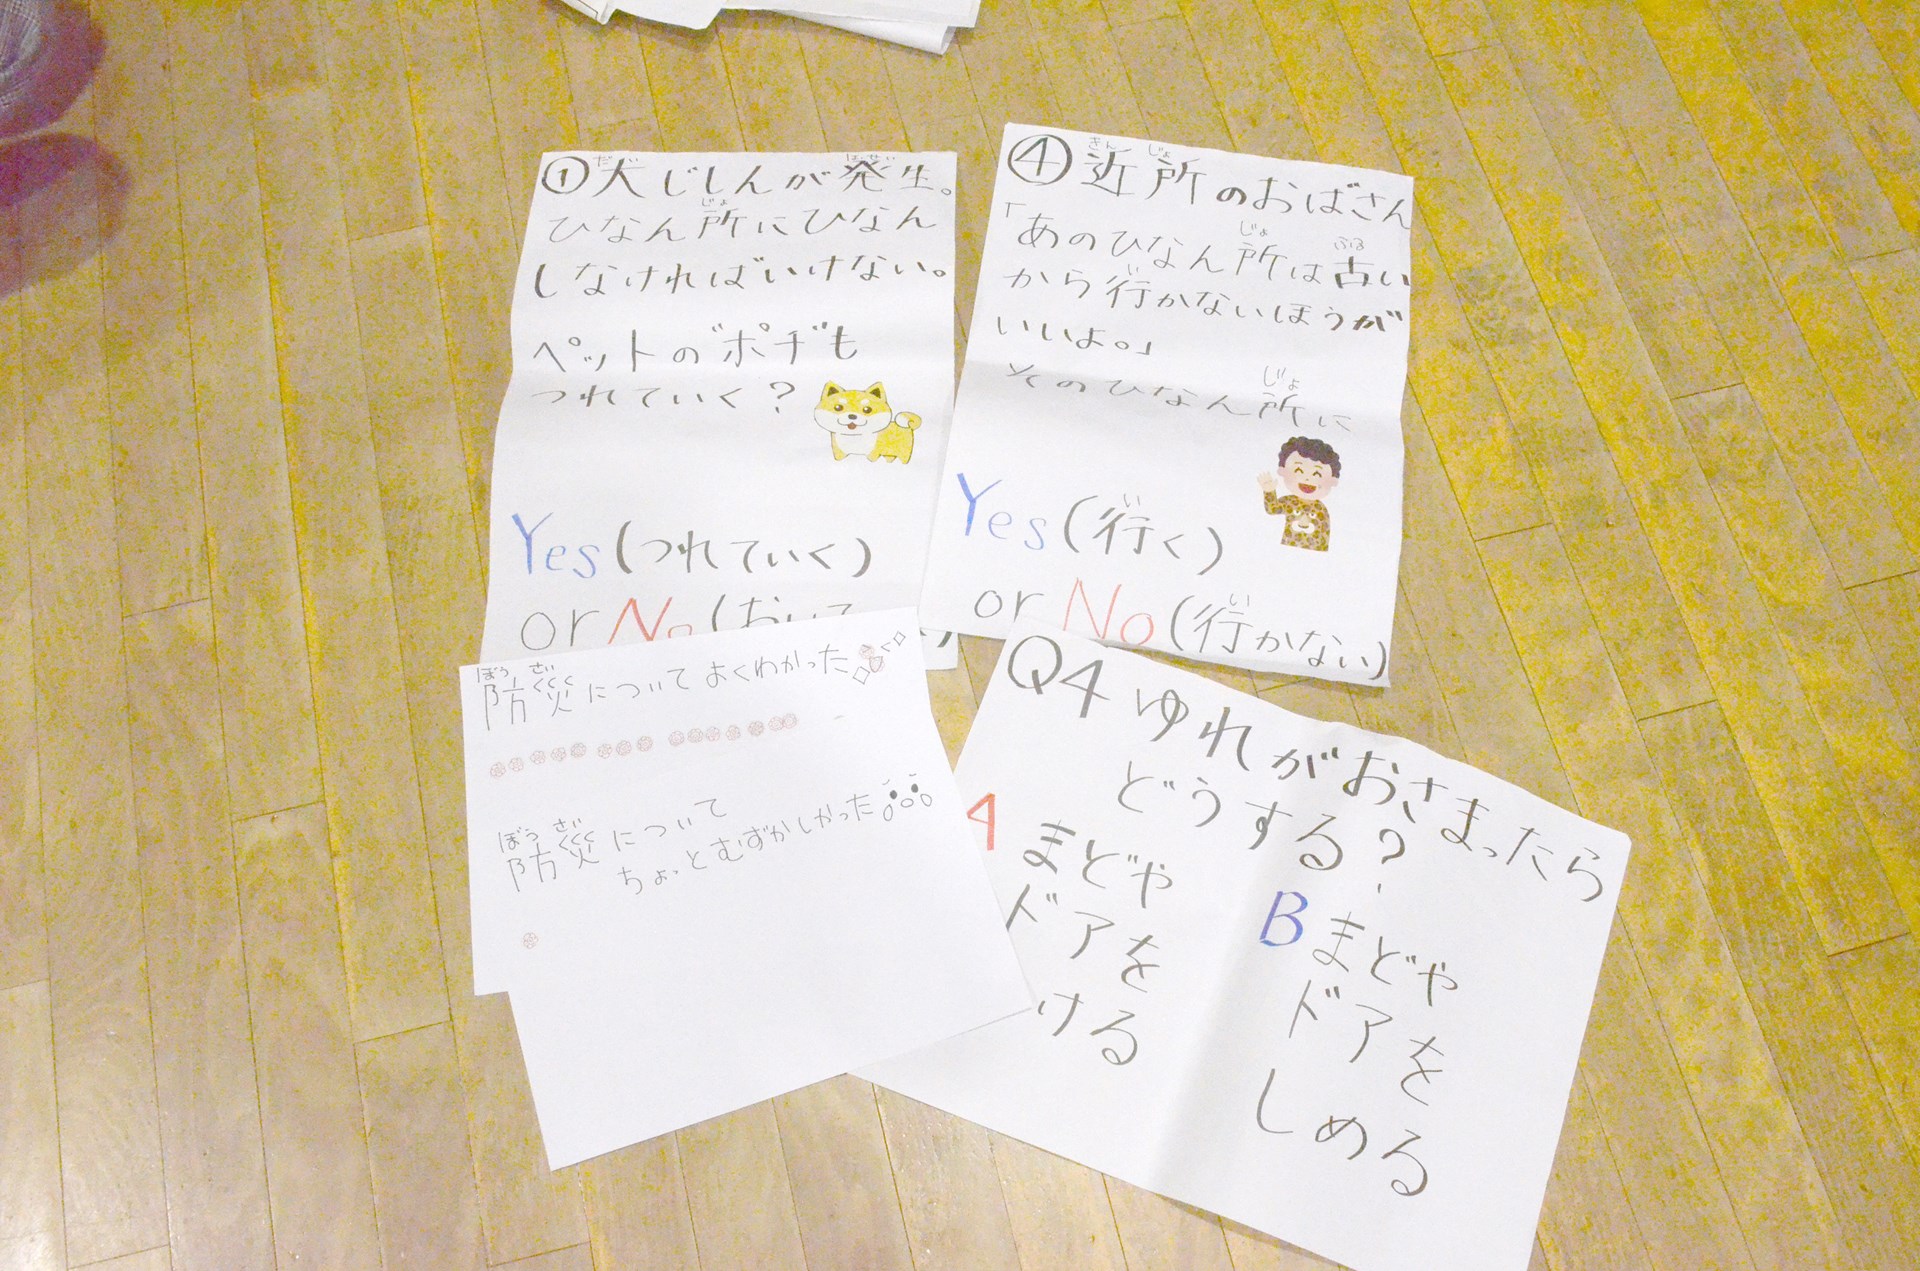 ①大じしんが発生。
ひなん所にひなん
しなければいけない。
ペットの"ポチ"も
つれていく?
Yes(つれていく)
or No(おいて
④近所のおばさん
「あのひなん所は古い
から行かないほうが
いいよ。」
そのひなん所に
Yes(行く)
or No(行かない)
防災についてよくわかった
防災について
ちょっとむずかしかった
Q4 ゆれがおさまったら
どうする?
A まどや
ドアを
ける
B まどや
ドアを
しめる